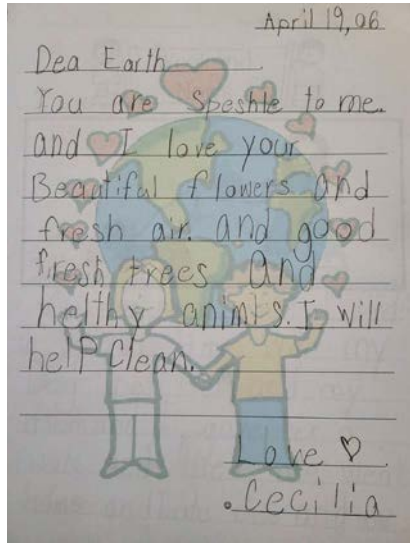 April 19,06
Dea Earth
You are Speshle to me.
and I love your
Beautiful flowers and
fresh air. and good
fresh trees and
helthy animls. I will
help Clean.
Love ♡
.Cecilia